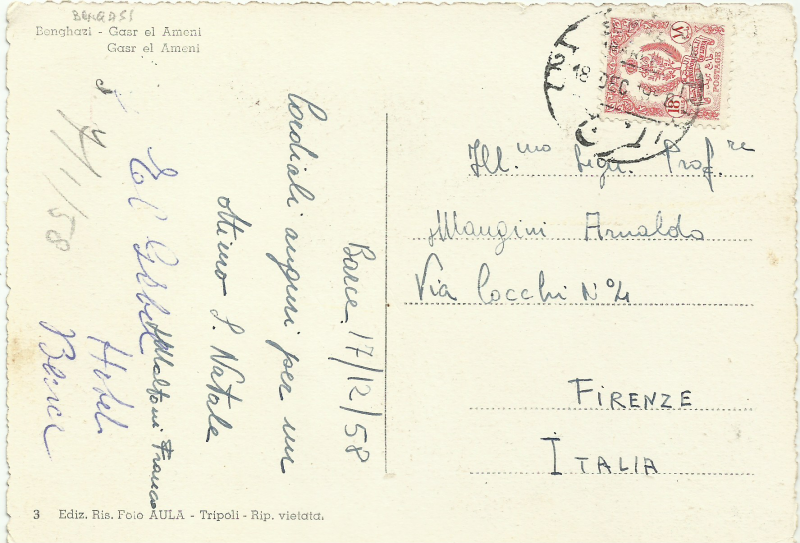 BENGASI
Benghazi - Gasr el Ameni
Gasr el Ameni
Barce 17/12/58
Cordiali auguri per un
ottimo S. Natale
Maltoni Franco
Hotel
/1/58
18 DEC
POSTAGE
18
Ill.mo Sign. Prof.re
Mangini Arnaldo
Via Cocchi N° 4
FIRENZE
ITALIA
3 Ediz. Ris. Foto AULA - Tripoli - Rip. vietata.